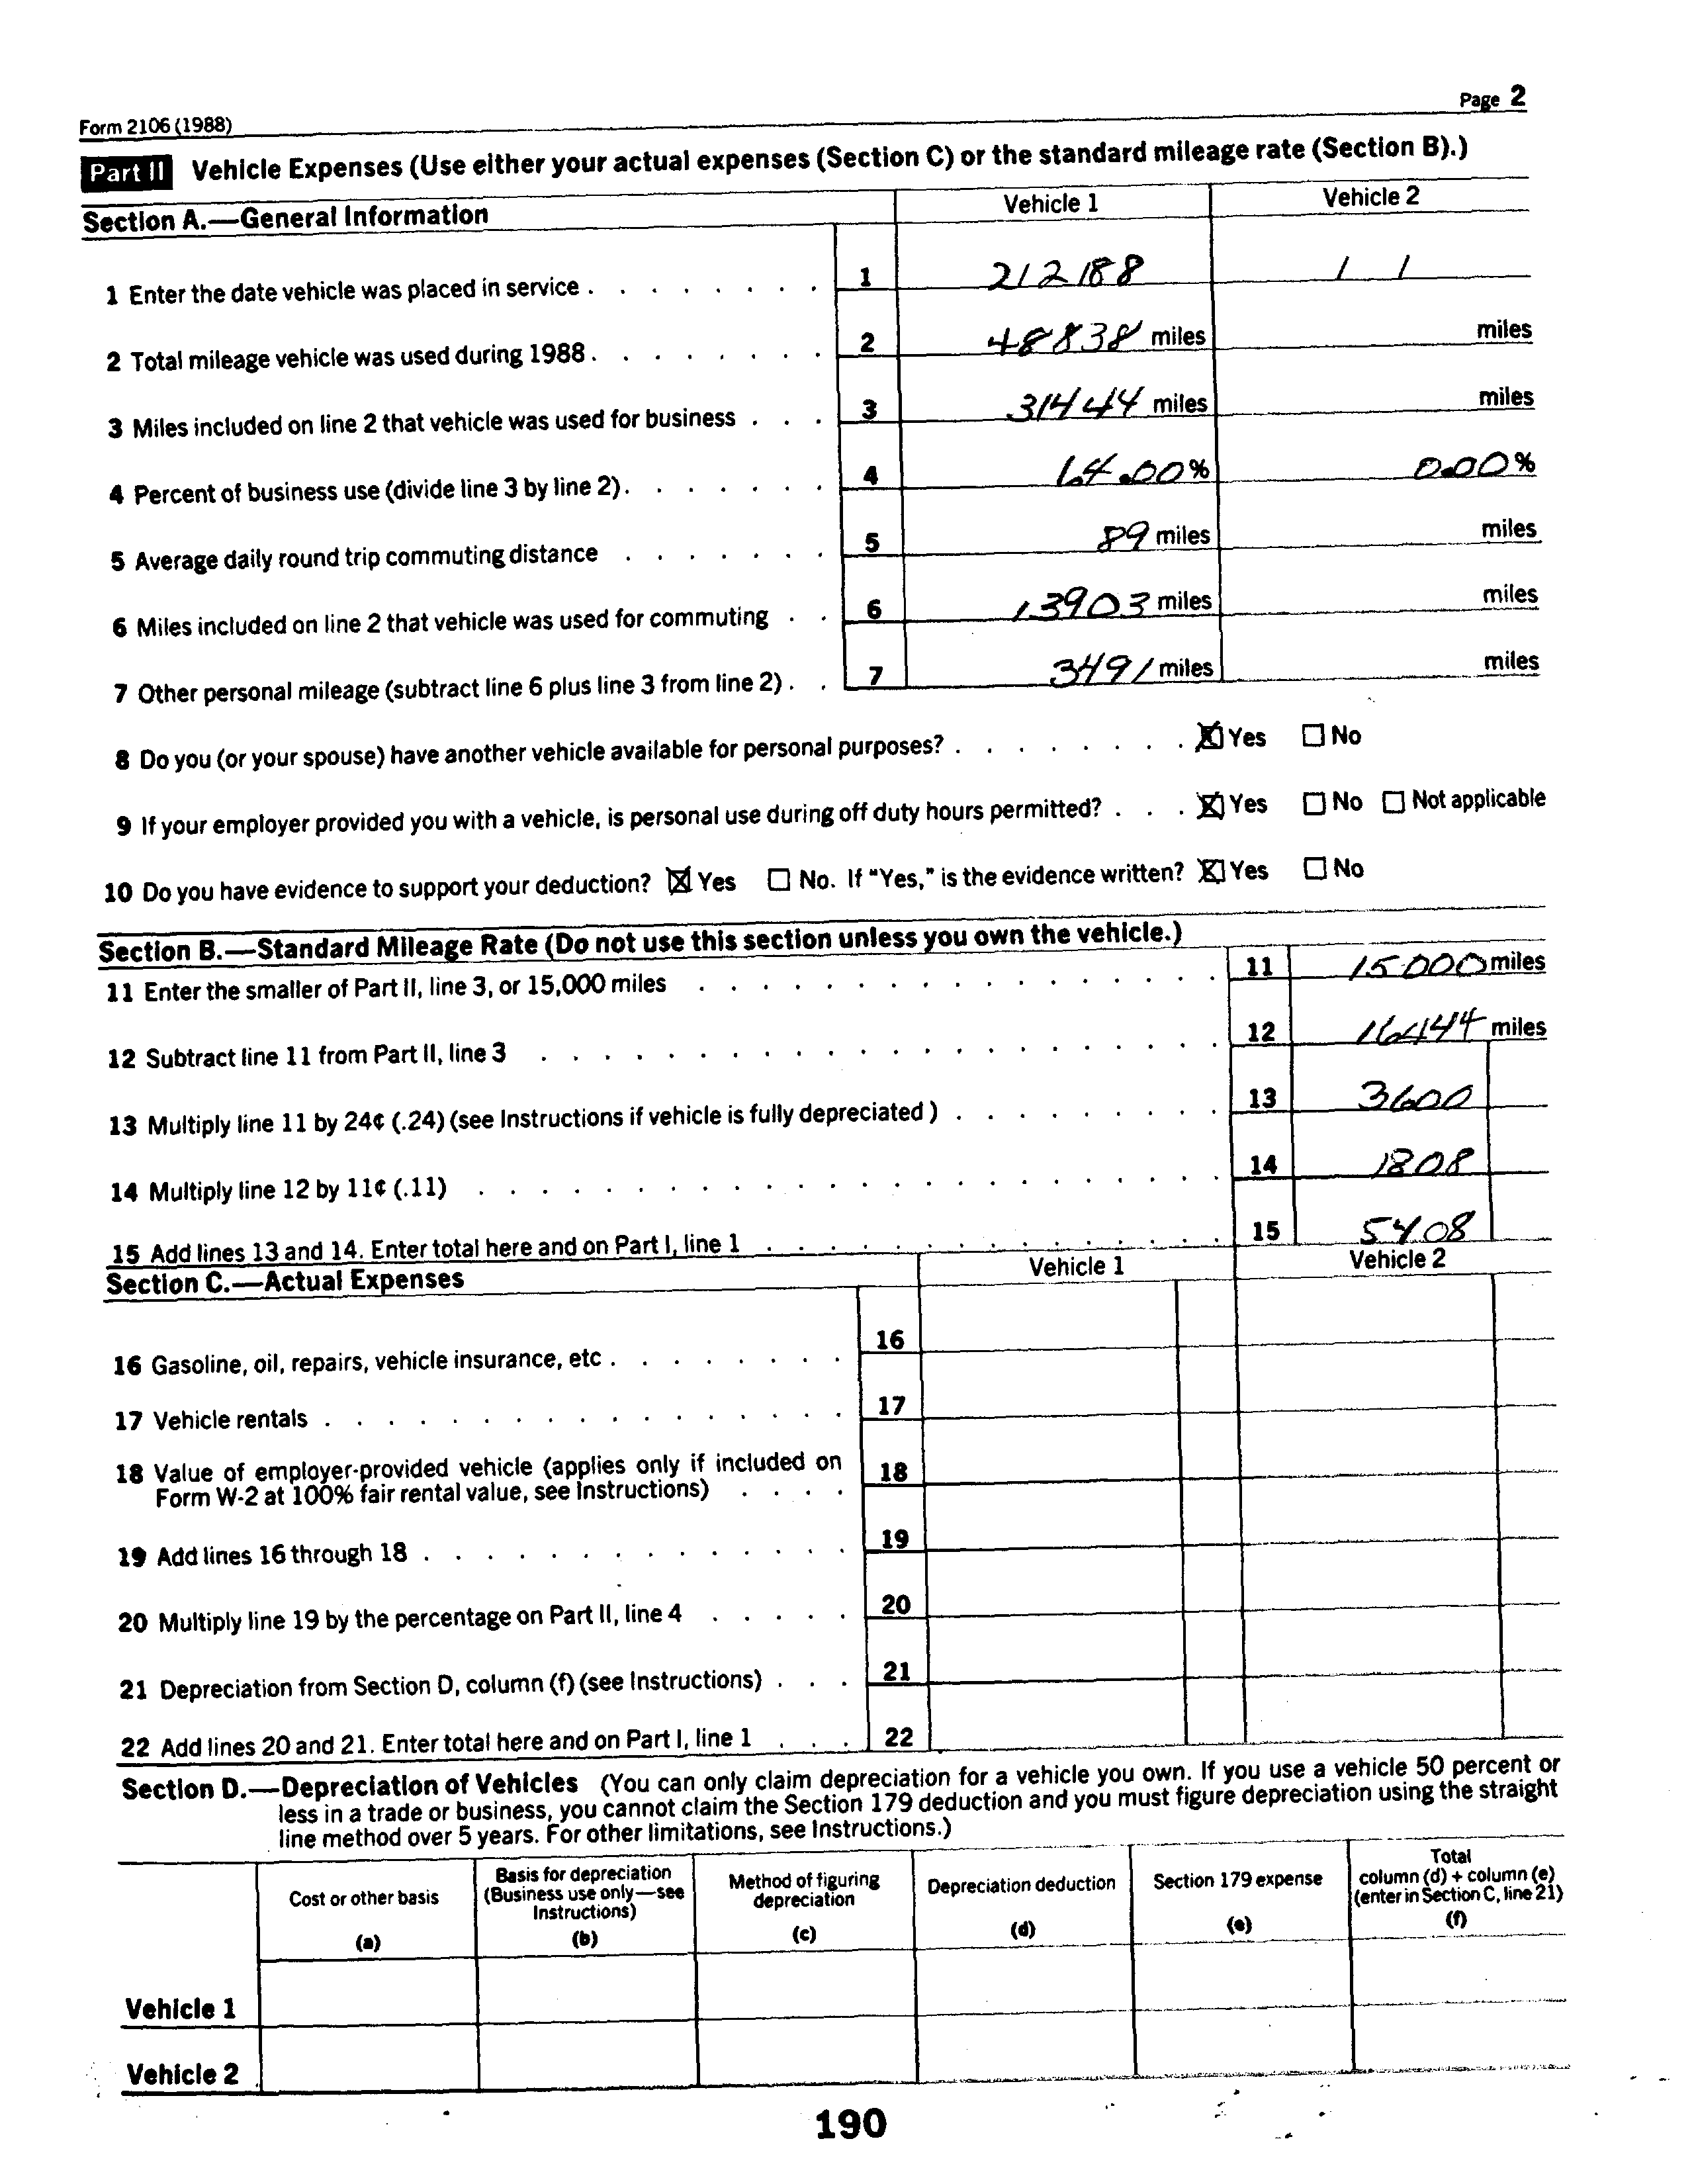 Form 2106 (1988) Page 2
Part II Vehicle Expenses (Use either your actual expenses (Section C) or the standard mileage rate (Section B).)
Section A.—General Information Vehicle 1 Vehicle 2
1 Enter the date vehicle was placed in service . . . . . . . . 1 2/2/88 / /
2 Total mileage vehicle was used during 1988 . . . . . . . . 2 48838 miles miles
3 Miles included on line 2 that vehicle was used for business . . . 3 31444 miles miles
4 Percent of business use (divide line 3 by line 2) . . . . . . . 4 64.00% 0.00%
5 Average daily round trip commuting distance . . . . . . . 5 89 miles miles
6 Miles included on line 2 that vehicle was used for commuting . . 6 13903 miles miles
7 Other personal mileage (subtract line 6 plus line 3 from line 2) . . 7 3491 miles miles
8 Do you (or your spouse) have another vehicle available for personal purposes? . . . . . . . . ☒ Yes ☐ No
9 If your employer provided you with a vehicle, is personal use during off duty hours permitted? . . . ☒ Yes ☐ No ☐ Not applicable
10 Do you have evidence to support your deduction? ☒ Yes ☐ No. If "Yes," is the evidence written? ☒ Yes ☐ No
Section B.—Standard Mileage Rate (Do not use this section unless you own the vehicle.)
11 Enter the smaller of Part II, line 3, or 15,000 miles . . . . . . . . . . . . . . . . . 11 15000 miles
12 Subtract line 11 from Part II, line 3 . . . . . . . . . . . . . . . . . . . . . . 12 16444 miles
13 Multiply line 11 by 24¢ (.24) (see Instructions if vehicle is fully depreciated) . . . . . . . . . 13 3600
14 Multiply line 12 by 11¢ (.11) . . . . . . . . . . . . . . . . . . . . . . . . 14 1808
15 Add lines 13 and 14. Enter total here and on Part I, line 1 . . . . . . . . . . . . . . . 15 5408
Section C.—Actual Expenses Vehicle 1 Vehicle 2
16 Gasoline, oil, repairs, vehicle insurance, etc . . . . . . . . 16
17 Vehicle rentals . . . . . . . . . . . . . . . . . 17
18 Value of employer-provided vehicle (applies only if included on
Form W-2 at 100% fair rental value, see Instructions) . . . . 18
19 Add lines 16 through 18 . . . . . . . . . . . . . . 19
20 Multiply line 19 by the percentage on Part II, line 4 . . . . . 20
21 Depreciation from Section D, column (f) (see Instructions) . . . 21
22 Add lines 20 and 21. Enter total here and on Part I, line 1 . . . 22
Section D.—Depreciation of Vehicles (You can only claim depreciation for a vehicle you own. If you use a vehicle 50 percent or
less in a trade or business, you cannot claim the Section 179 deduction and you must figure depreciation using the straight
line method over 5 years. For other limitations, see Instructions.)
Cost or other basis (a)
Basis for depreciation (Business use only—see Instructions) (b)
Method of figuring depreciation (c)
Depreciation deduction (d)
Section 179 expense (e)
Total column (d) + column (e) (enter in Section C, line 21) (f)
Vehicle 1
Vehicle 2
190